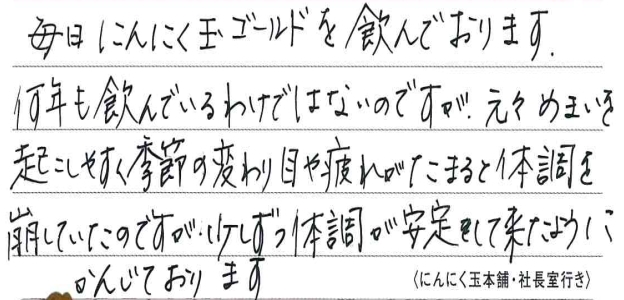 毎日にんにく玉ゴールドを飲んでおります.
何年も飲んでいるわけではないのですが、元々めまいを
起こしやすく季節の変わり目や疲れがたまると体調を
崩していたのですが、少しずつ体調が安定をして来たように
かんじております
〈にんにく玉本舗・社長室行き〉